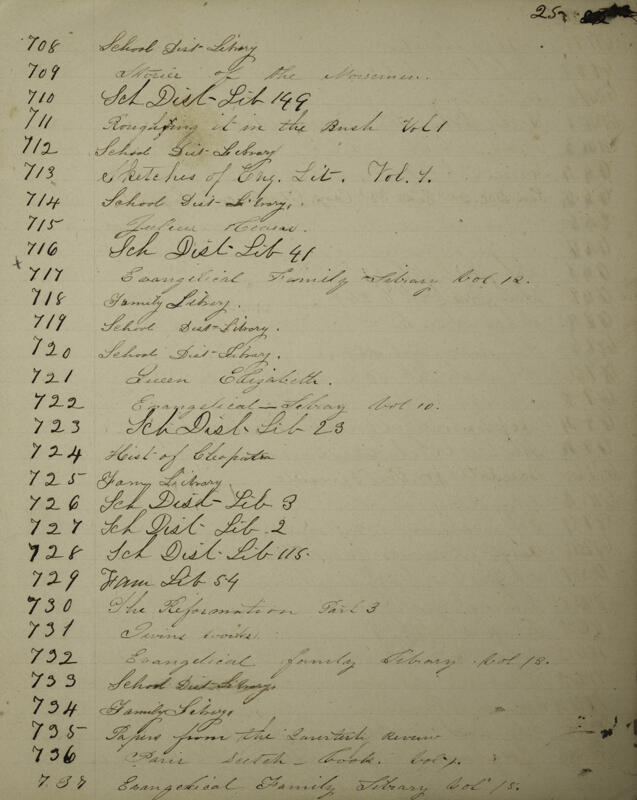 25
708 School Dist Library
709 Stories of the
710 Sch Dist Lib 149
711 Roughing it in the Bush Vol 1
712 School Dist Library
713 Sketches of Eng. Lit. Vol. 4.
714 School Dist Library,
715
716 Sch Dist Lib 41
717 Evangelical Family Library Vol 12.
718 Family Library.
719 School Dist Library.
720 School Dist Library.
721 Queen Elizabeth.
722 Evangelical Library Vol 10.
723 Sch Dist Lib 23
724 Hist of Cleopatra
725 Library
726 Sch Dist Lib 3
727 Sch Dist Lib 2
728 Sch Dist Lib 115
729 Fam Lib 54
730 The Reformation Part 3
731 works
732 Evangelical family Library Vol
733 School Dist Library,
734 Family Library
735 Papers from the Quarterly Review
736 Sketch Book. Vol
737 Evangelical Family Library Vol 15.